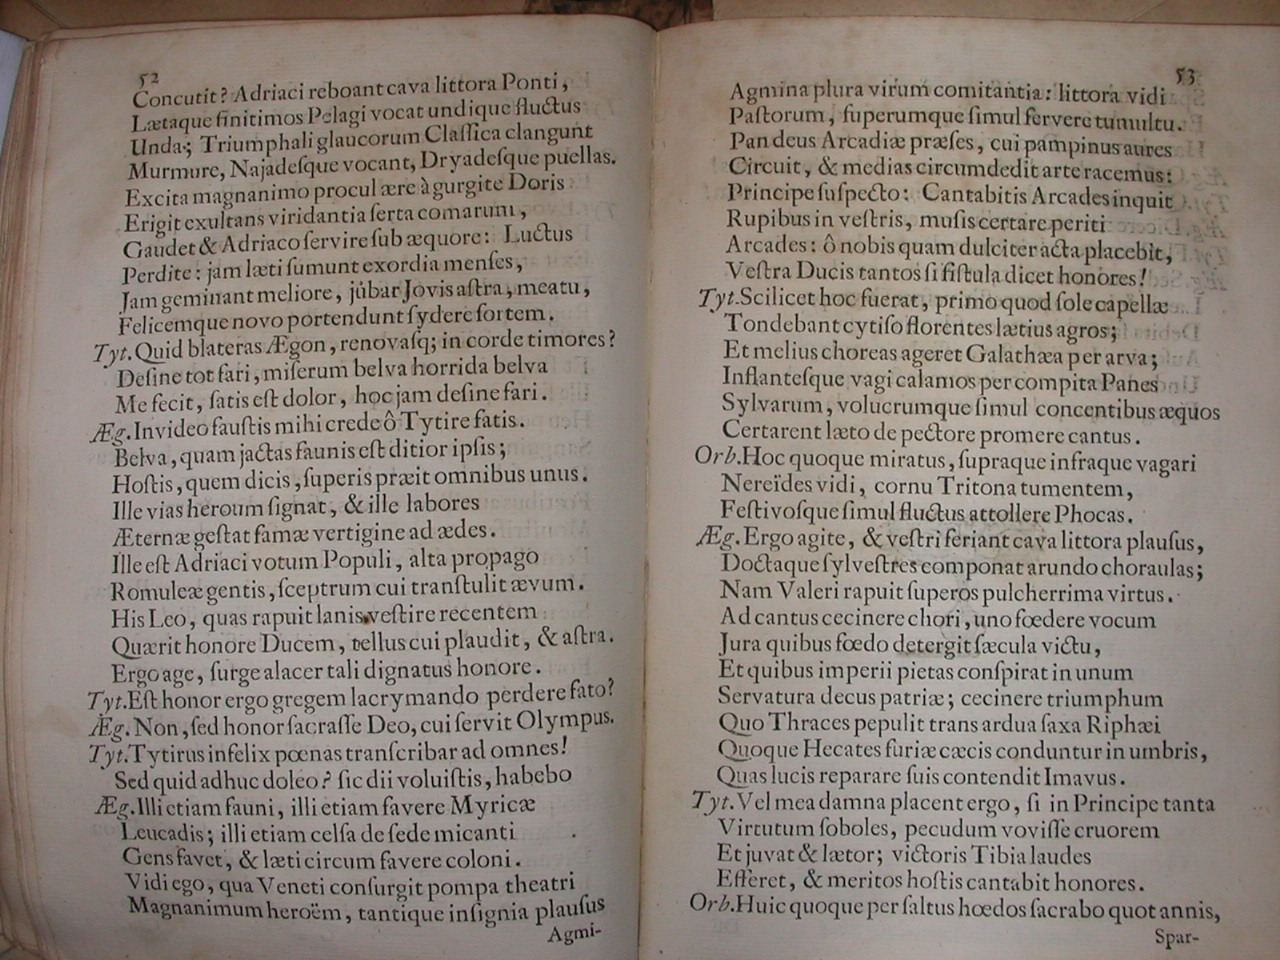 52
Concutit? Adriaci reboant cava littora Ponti,
Lætaque finitimos Pelagi vocat undique fluctus
Unda; Triumphali glaucorum Claſſica clangunt
Murmure, Najadeſque vocant, Dryadeſque puellas.
Excita magnanimo procul ære à gurgite Doris
Erigit exultans viridantia ſerta comarum,
Gaudet & Adriaco ſervire ſub æquore: Luctus
Perdite: jam læti ſumunt exordia menſes,
Jam geminant meliore, jûbar Jovis aſtra, meatu,
Felicemque novo portendunt ſydere ſortem.
Tyt. Quid blateras Ægon, renovaſq; in corde timores?
Deſine tot fari, miſerum belva horrida belva
Me fecit, ſatis eſt dolor, hoc jam deſine fari.
Æg. Invideo fauſtis mihi crede ô Tytire fatis.
Belva, quam jactas faunis eſt ditior ipſis;
Hoſtis, quem dicis, ſuperis præit omnibus unus.
Ille vias heroum ſignat, & ille labores
Æternæ geſtat famæ vertigine ad ædes.
Ille eſt Adriaci votum Populi, alta propago
Romuleæ gentis, ſceptrum cui tranſtulit ævum.
His Leo, quas rapuit lanis veſtire recentem
Quærit honore Ducem, tellus cui plaudit, & aſtra.
Ergo age, ſurge alacer tali dignatus honore.
Tyt. Eſt honor ergo gregem lacrymando perdere fato?
Æg. Non, ſed honor ſacraſſe Deo, cui ſervit Olympus.
Tyt. Tytirus infelix pœnas tranſcribar ad omnes!
Sed quid adhuc doleo? ſic dii voluiſtis, habebo
Æg. Illi etiam fauni, illi etiam favere Myricæ
Leucadis; illi etiam celſa de ſede micanti
Gens favet, & læti circum favere coloni.
Vidi ego, qua Veneti conſurgit pompa theatri
Magnanimum heroëm, tantique inſignia plauſus
Agmi-
53
Agmina plura virûm comitantia: littora vidi
Paſtorum, ſuperumque ſimul fervere tumultu.
Pan deus Arcadiæ præſes, cui pampinus aures
Circuit, & medias circumdedit arte racemus:
Principe ſuſpecto: Cantabitis Arcades inquit
Rupibus in veſtris, muſis certare periti
Arcades: ô nobis quam dulciter acta placebit,
Veſtra Ducis tantos ſi fiſtula dicet honores!
Tyt. Scilicet hoc fuerat, primo quod ſole capellæ
Tondebant cytiſo florentes lætius agros;
Et melius choreas ageret Galathæa per arva;
Inflanteſque vagi calamos per compita Panes
Sylvarum, volucrumque ſimul concentibus æquos
Certarent læto de pectore promere cantus.
Orb. Hoc quoque miratus, ſupraque infraque vagari
Nereïdes vidi, cornu Tritona tumentem,
Feſtivoſque ſimul fluctus attollere Phocas.
Æg. Ergo agite, & veſtri feriant cava littora plauſus,
Doctaque ſylveſtres componat arundo choraulas;
Nam Valeri rapuit ſuperos pulcherrima virtus.
Ad cantus cecinere chori, uno fœdere vocum
Jura quibus fœdo detergit ſæcula victu,
Et quibus imperii pietas conſpirat in unum
Servatura decus patriæ; cecinere triumphum
Quo Thraces pepulit trans ardua ſaxa Riphæi
Quoque Hecates furiæ cæcis conduntur in umbris,
Quas lucis reparare ſuis contendit Imavus.
Tyt. Vel mea damna placent ergo, ſi in Principe tanta
Virtutum ſoboles, pecudum voviſſe cruorem
Et juvat & lætor; victoris Tibia laudes
Efferet, & meritos hoſtis cantabit honores.
Orb. Huic quoque per ſaltus hœdos ſacrabo quot annis,
Spar-